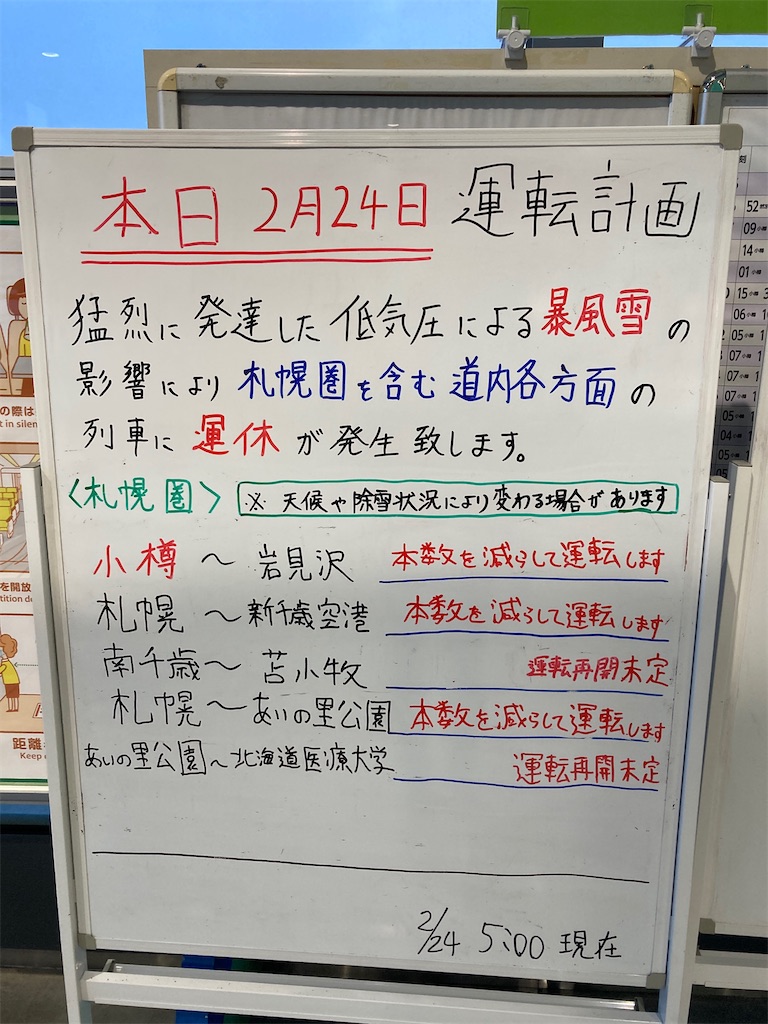 本日 2月24日 運転計画
猛烈に発達した低気圧による暴風雪の
影響により 札幌圏を含む 道内各方面の
列車に 運休 が発生致します。
〈札幌圏〉 ※ 天候や除雪状況により変わる場合があります
小樽 〜 岩見沢 本数を減らして運転します
札幌 〜 新千歳空港 本数を減らして運転します
南千歳 〜 苫小牧 運転再開未定
札幌 〜 あいの里公園 本数を減らして運転します
あいの里公園 〜 北海道医療大学 運転再開未定
2/24 5:00 現在
の際は
t in silen
を開放
tition do
距離
Keep
刻
52
09 小樽
14 小樽
01 小樽
15 小樽
06 小樽
05 小樽
07 小樽
07 小樽
05 小樽
04 小樽
05 小樽